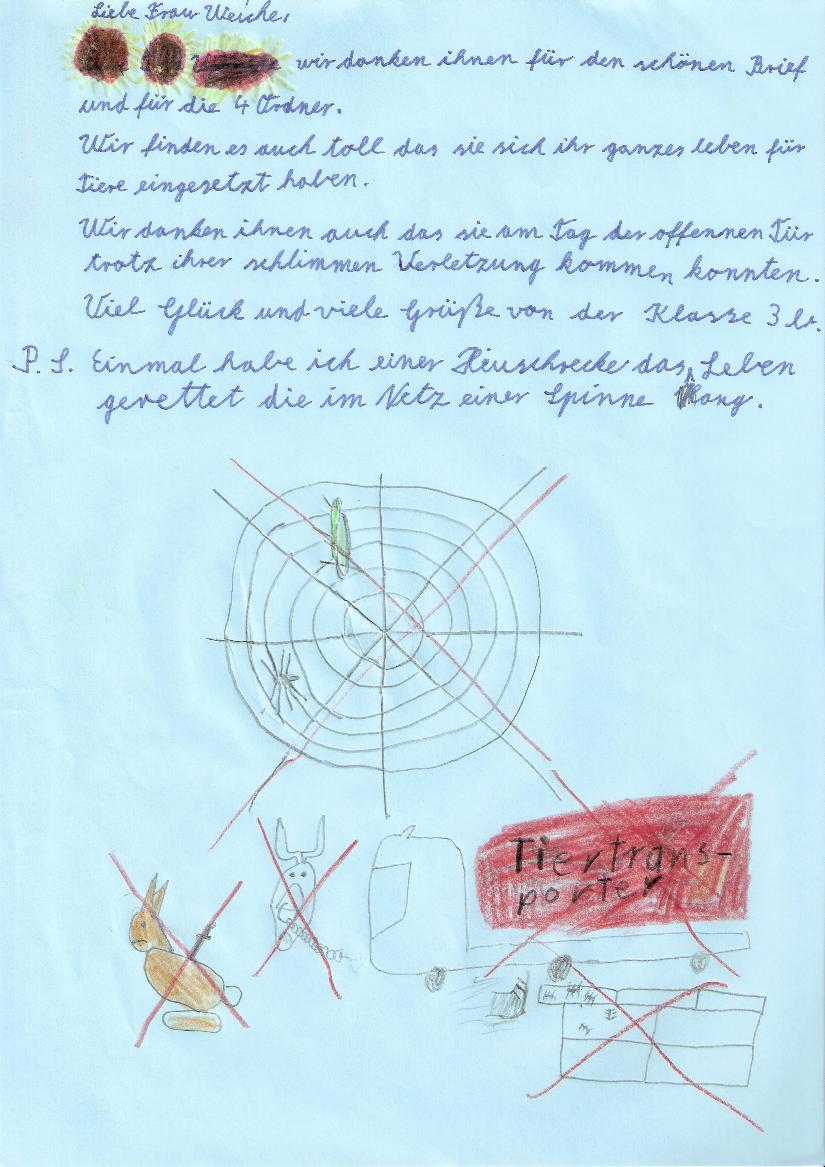 Liebe Frau Weiche,
wir danken ihnen für den schönen Brief
und für die 4 Ordner.
Wir finden es auch toll das sie sich ihr ganzes leben für
Tiere eingesetzt haben.
Wir danken ihnen auch das sie am Tag der offennen Tür
trotz ihrer schlimmen Verletzung kommen konnten.
Viel Glück und viele Grüße von der Klasse 3 b.
P. S. Einmal habe ich einer Heuschrecke das Leben
gerettet die im Netz einer Spinne
Tiertrans-
porter